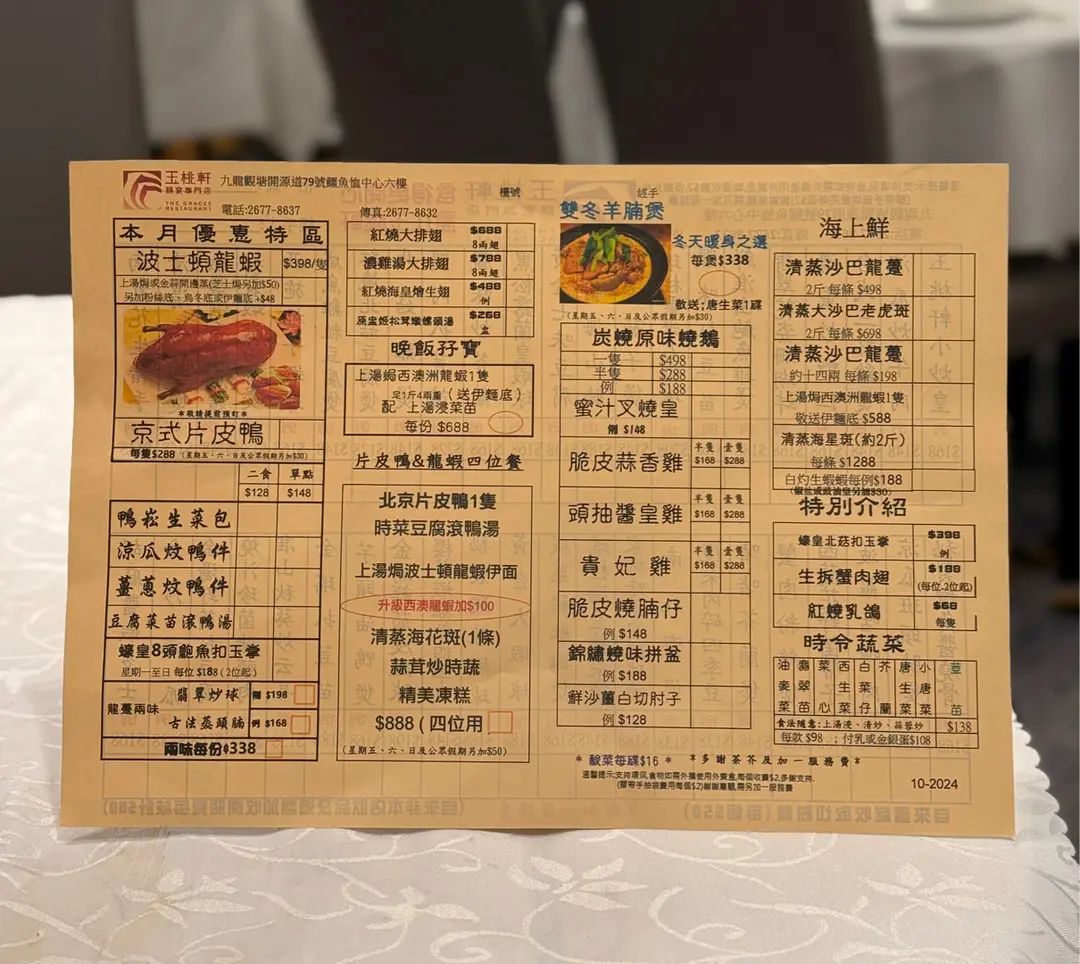 玉桃軒
囍宴專門店
THE GRACES
RESTAURANT
九龍觀塘開源道79號鱷魚恤中心六樓
電話:2677-8637
傳真:2677-8632
檯號
經手
本月優惠特區
波士頓龍蝦 $398/隻
上湯焗或金蒜開邊蒸(芝士焗另加$50)
另加粉絲底、烏冬底或伊麵底 +$48
*敬請提前預訂*
京式片皮鴨
每隻$288 (星期五、六、日及公眾假期另加$30)
二食 單點
$128 $148
鴨崧生菜包
涼瓜炆鴨件
薑蔥炆鴨件
豆腐菜苗滾鴨湯
蠔皇8頭鮑魚扣玉掌
星期一至日 每位 $188 (2位起)
龍躉兩味
翡翠炒球 例 $198
古法蒸頭腩 例 $168
兩味每份$338
紅燒大排翅 $688
8兩翅
濃雞湯大排翅 $788
8兩翅
紅燒海皇燴生翅 $488
例
原盅姬松茸燉螺頭湯 $268
盅
晚飯孖寶
上湯焗西澳洲龍蝦1隻
足1斤4兩重 (送伊麵底)
配 上湯浸菜苗
每份 $688
片皮鴨&龍蝦四位餐
北京片皮鴨1隻
時菜豆腐滾鴨湯
上湯焗波士頓龍蝦伊面
升級西澳龍蝦加$100
清蒸海花斑(1條)
蒜茸炒時蔬
精美凍糕
$888 (四位用
(星期五、六、日及公眾假期另加$50)
雙冬羊腩煲
冬天暖身之選
每煲$338
敬送:唐生菜1碟
(星期五、六、日及公眾假期另加$30)
炭燒原味燒鵝
一隻 $498
半隻 $288
例 $188
蜜汁叉燒皇
例 $148
脆皮蒜香雞 半隻 $168 壹隻 $288
頭抽醬皇雞 半隻 $168 壹隻 $288
貴妃雞 半隻 $168 壹隻 $288
脆皮燒腩仔
例 $148
錦繡燒味拼盆
例 $188
鮮沙薑白切肘子
例 $128
* 酸菜每碟$16 * *多謝茶芥及加一服務費*
溫馨提示:支持環保,食物如需外攜使用外賣盒,每個收費$2,多謝支持.
(膠帶手抽袋費用每個$2)謝謝專顧,需另加一服務費
海上鮮
清蒸沙巴龍躉
2斤 每條 $498
清蒸大沙巴老虎斑
2斤 每條 $698
清蒸沙巴龍躉
約十四兩 每條 $198
上湯焗西澳洲龍蝦1隻
敬送伊麵底 $588
清蒸海星斑(約2斤)
每條 $1288
白灼生蝦蝦每例$188
(椒盐或豉油皇另加$30)
特別介紹
蠔皇北菇扣玉掌 $398
例
生拆蟹肉翅 $188
(每位.2位起)
紅燒乳鴿 $68
每隻
時令蔬菜
油麥菜
翡翠苗
菜心
西生菜
白菜仔
芥蘭
唐生菜
小唐菜
荳苗
食法隨意:上湯浸、清炒、蒜蓉炒
每款 $98 ; 付乳或金銀蛋$108
$138
10-2024